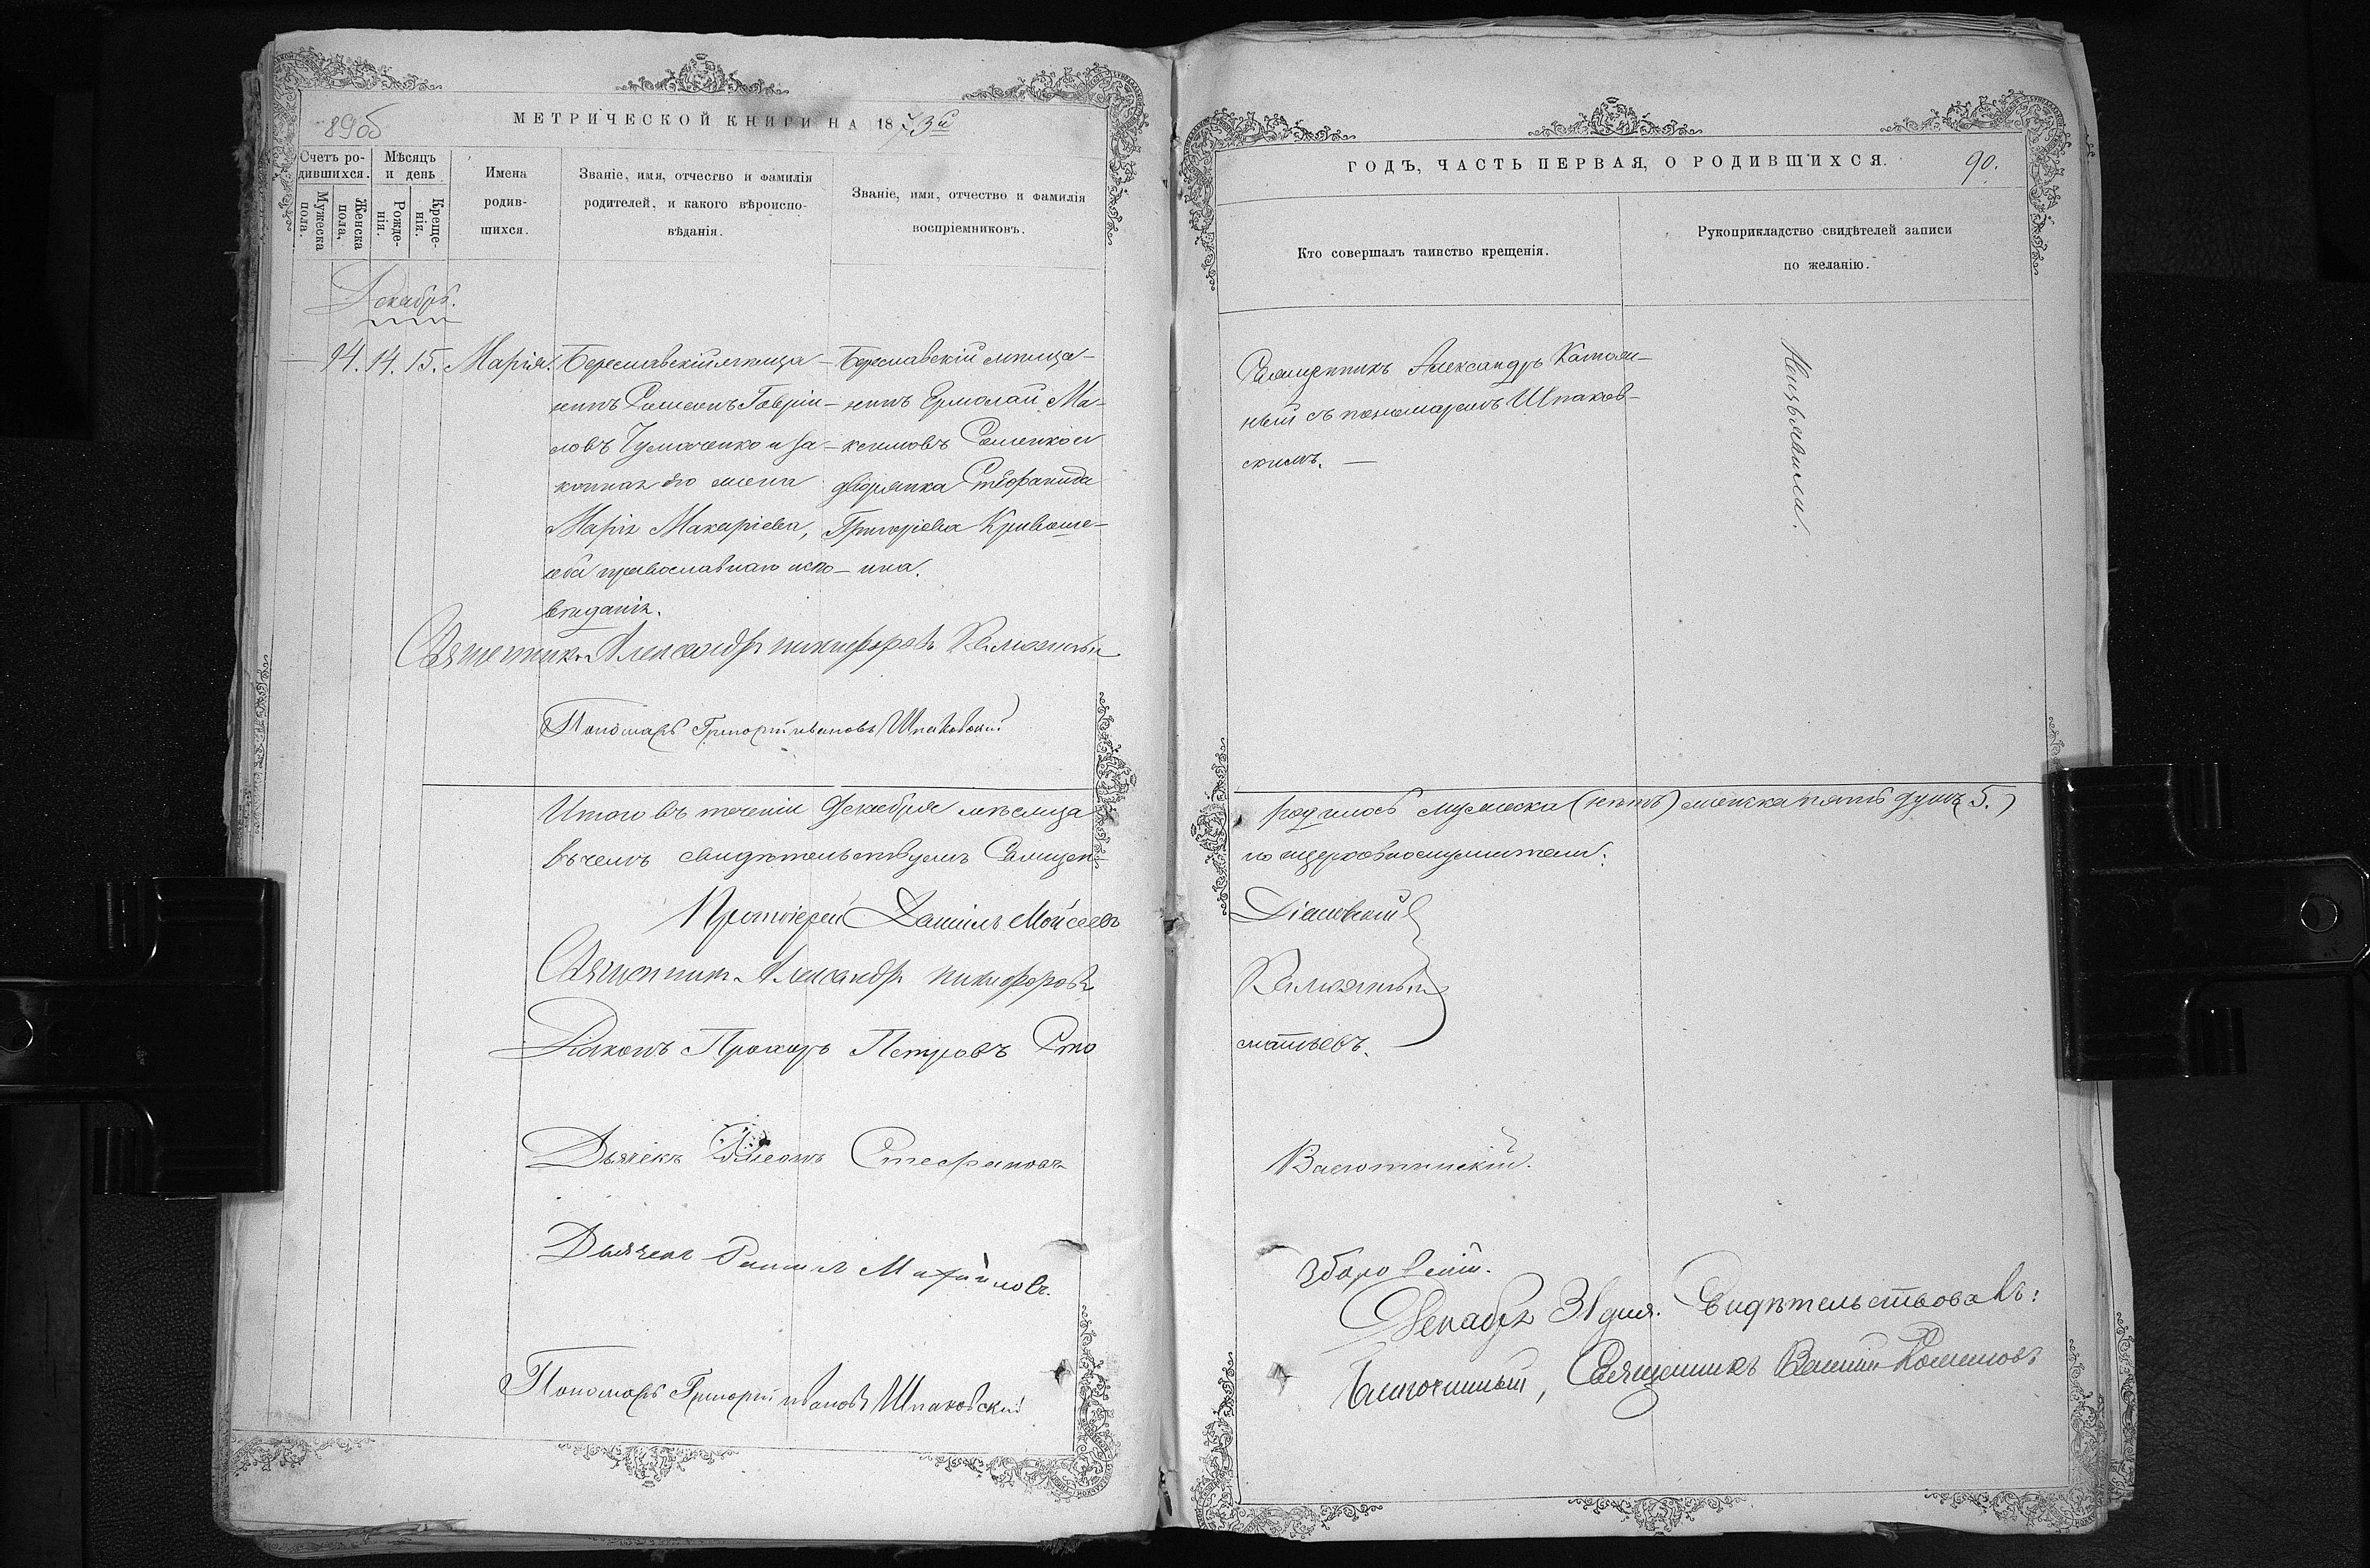 89 об
МЕТРИЧЕСКОЙ КНИГИ НА 1873й
Счетъ ро-
дившихся.
Мѣсяцъ
и день
Мужеска
пола.
Женска
пола.
Рожде-
нія.
Креще-
нія.
Имена
родив-
шихся.
Званіе, имя, отчество и фамилія
родителей, и какого вѣроиспо-
вѣданія.
Званіе, имя, отчество и фамилія
воспріемниковъ.
Декабрь.
14. 14. 15. Марія.
Береславскій мѣща-
нинъ Симеонъ Гаврiи-
ловъ Чумаченко и за-
конная его жена
Марія Макаріева,
оба православнаго испо-
вѣданія.
Береславскій мѣща-
нинъ Ермолай Ма-
ксимовъ Семенко и
дворянка Стефанида
Григоріева Кривоше-
ина.
Священникъ Александръ Никифоровъ Калюжный
Пономарь Григорій Ивановъ Шпаковскій
Итого въ теченіи Декабря мѣсяца
въ чемъ свидѣтельствуемъ Священ-
Протоіерей Даніилъ Мойсеевъ
Священникъ Александръ Никифоровъ
Діаконъ Прохоръ Петровъ Сто
Дьячекъ Стефановъ
Дьячекъ Михайловъ.
Пономарь Григорій Ивановъ Шпаковскій
ГОДЪ, ЧАСТЬ ПЕРВАЯ, О РОДИВШИХСЯ.
90.
Кто совершалъ таинство крещенія.
Рукоприкладство свидѣтелей записи
по желанію.
Священникъ Александръ Калюж-
ный съ пономаремъ Шпаков-
скимъ.
Неизъявили.
родилось мужеска (нѣтъ) женска пять душъ 5.)
но церковнослужители:
Калюжный
матьевъ.
Васютинскій.
Зборовскій.
Декабря 31 дня. Свидѣтельствовалъ:
Благочинный, Священникъ